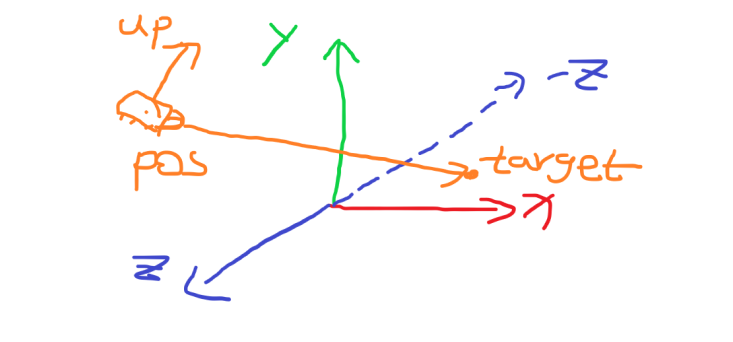 up
Y
-Z
pos
target
X
Z